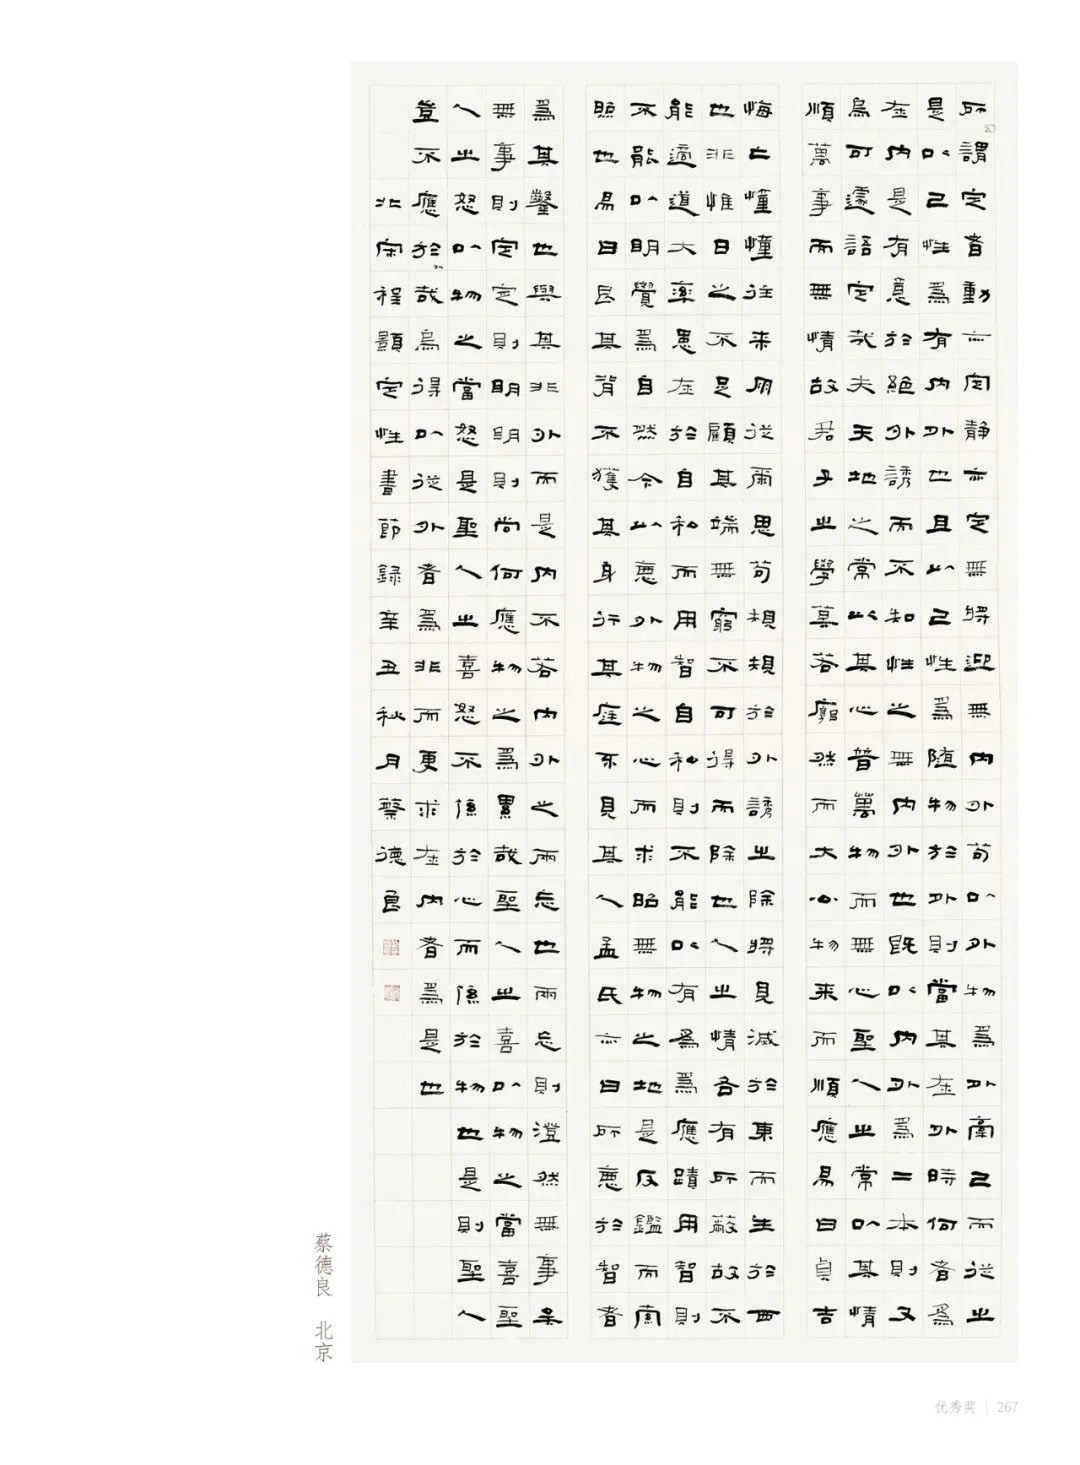 所謂定者動亦定静亦定無將迎無内外苟以外物爲外牽己而從之
是以己性爲有内外也且以己性爲隨物於外則當其在外時何者爲
在内是有意於絕外誘而不知性之無内外也既以内外爲二本則又
烏可遽語定哉夫天地之常以其心普萬物而無心聖人之常以其情
順萬事而無情故君子之學莫若廓然而大公物来而順應易曰貞吉
悔亡憧憧往来朋從爾思苟規規於外誘之除將見滅於東而生於西
也非惟日之不足顧其端無窮不可得而除也人之情各有所蔽故不
能適道大率患在於自私而用智自私則不能以有爲爲應蹟用智則
不能以明覺爲自然今以惡外物之心而求照無物之地是反鑑而索
照也易曰艮其背不獲其身行其庭不見其人孟氏亦曰所惡於智者
爲其鑿也與其非外而是内不若内外之兩忘也兩忘則澄然無事矣
無事則定定則明明則尚何應物之爲累哉聖人之喜以物之當喜聖
人之怒以物之當怒是聖人之喜怒不係於心而係於物也是則聖人
豈不應於物哉烏得以從外者爲非而更求在内者爲是也
北宋程顥定性書節録辛丑秋月蔡德良
蔡德良 北京
优秀奖 | 267